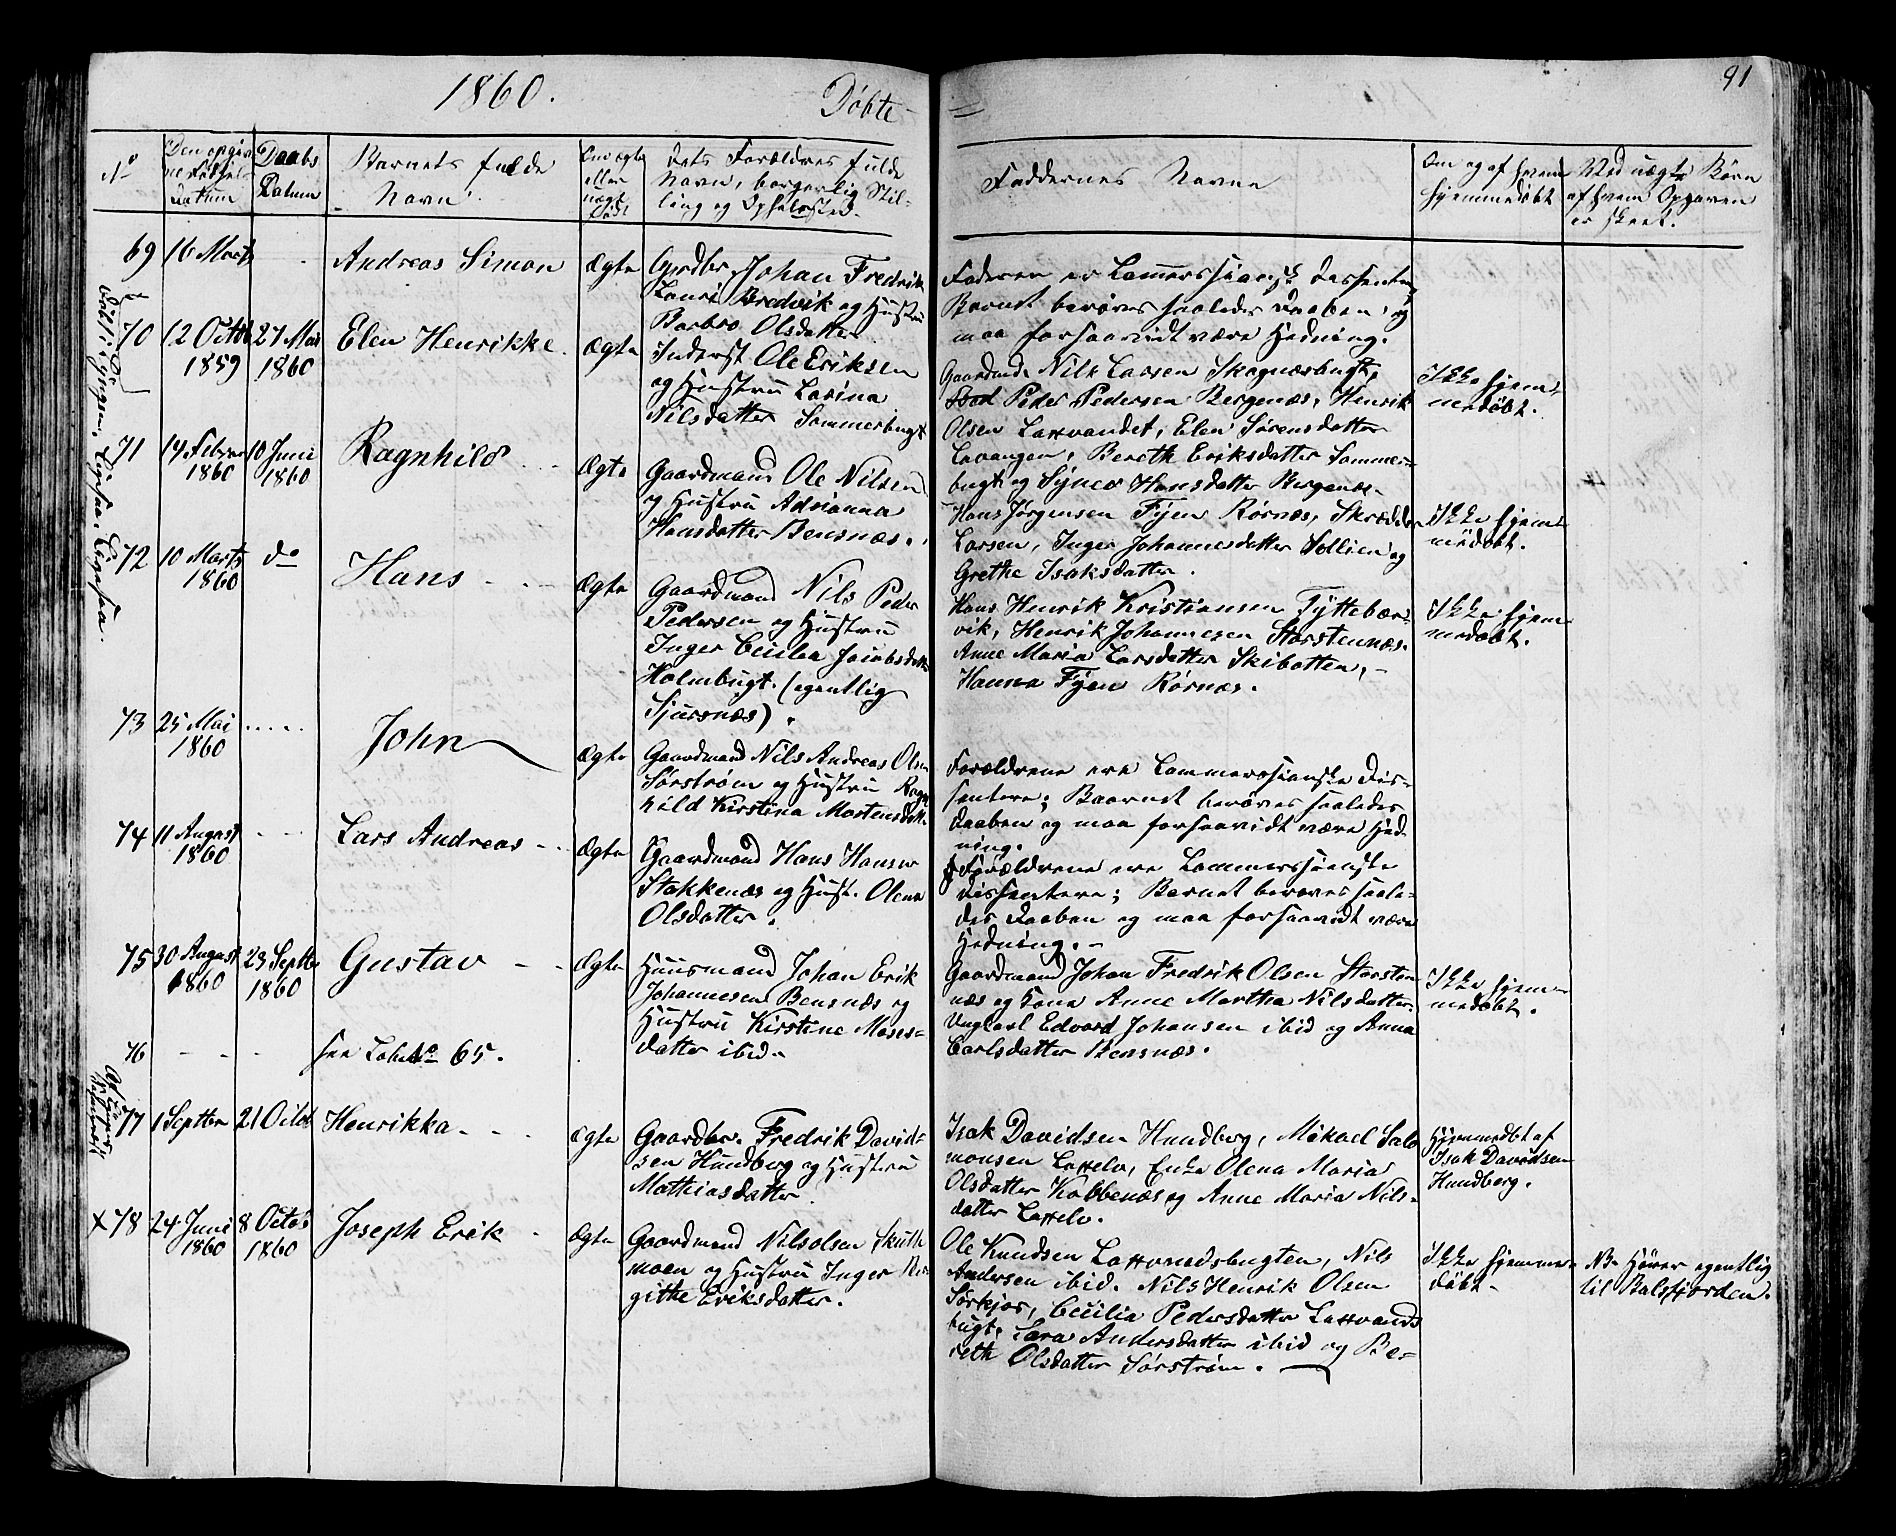 1860.
Døbte
91
No
Den opgiv-
ne Fødsel-
Datum
Daabs
Datum
Barnets fulde
Navn.
Om ægte
eller
uægte
født
Dets Forældres fulde
Navn, borgerlig Stil-
ling og Opholdssted.
Faddernes Navne
Om og af hvem
hjemmedøbt
Ved uægte Børn
af hvem Opgaven
er skeet.
69 16 Marts
Andreas Simon
Ægte
Grdbr Johan Fredrik
Lauri Bredvik og Hustru
Barbro Olsdatter
Faderen er Lammersiansk Dissenter,
Barnet berøves saaledes Daaben, og
maa forsaavidt være Hedning.
70 12 Octob
1859
27 Mai
1860
Elen Henrikke.
Ægte
Inderst Ole Eriksen
og Hustru Larina
Nilsdatter Sommerbugt
Gaardmd. Nils Larsen Skognæsbugt,
Peder Pedersen Bergenæs, Henrik
Olsen Laxvandet, Elen Sørensdatter
Lavangen, Bereth Eriksdatter Sommer-
bugt og Hansdatter Bergenæs.
Ikke hjem-
medøbt.
71 14 Februar
1860
10 Juni
1860
Ragnhild
Ægte
Gaardmand Ole Nilsen
og Hustru Adrianna
Hansdatter Bensnæs.
Hans Jørgensen Fyen Rørnæs, Skrædder
Larsen, Inger Johannesdatter Sollien og
Grethe Isaksdatter.
Ikke hjem-
medøbt.
72 10 Marts
1860
do
Hans
Ægte
Gaardmand Nils Peder
Pedersen og Hustru
Inger Cecilia Jacobsdatter
Holmbugt. (egentlig
Sjursnæs).
Hans Henrik Kristiansen Tyttebær-
vik, Henrik Johannesen Storstennæs.
Anne Maria Larsdatter Skibotten,
Hanna Fyen Rørnæs.
Ikke hjem-
medøbt.
73 25 Mai
1860
John
Ægte
Gaardmand Nils Andreas Olsen
Sørstrøm og Hustru Ragn
hild Kirstina Mortensdatt.
Forældrene ere Lammersianske Dis-
sentere; Baarnet berøves saaledes
Daaben og maa forsaavidt være Hed-
ning.
74 11 August
1860
Lars Andreas
Ægte
Gaardmand Hans Hansen
Stokkenæs og Hust. Olena
Olsdatter.
Forældrene ere Lammersianske
Dissentere; Barnet berøves saale-
des Daaben og maa forsaavidt være
Hedning.
75 30 August
1860
23 Septbr
1860
Gustav
Ægte
Huusmand Johan Erik
Johannesen Bensnæs og
Hustru Kirstine Moses-
datter ibid.
Gaardmand Johan Fredrik Olsen Storsten
næs og Kone Anne Martha Nilsdatter.
Ungkarl Edvard Johansen ibid og Anna
Carlsdatter Bensnæs.
Ikke hjem-
medøbt.
76
see LøbeNo 65.
77 1 Septber 21 Octob
Henrikka
Ægte
Gaardbr. Fredrik David-
sen Hundberg og Hustru
Mathiasdatter.
Isak Davidsen Hundberg, Mikael Salo
monsen Laxelv, Enke Olena Maria
Olsdatter Kobbenæs og Anne Maria Nils-
datter Laxelv.
Hjemmedøbt af
Isak Davidsen
Hundberg.
x 78 24 Juni
1860
8 Octob
1860
Joseph Erik
Ægte
Gaardmand Nils Olsen Skutt
moen og Hustru Inger Ber-
githe Eriksdatter.
Ole Knudsen Laxvandsbugten, Nils
Andersen ibid. Nils Henrik Olsen
Sørkjos, Cecilia Pedersdatter Laxvands
bugt. Sara Andersdatter ibid og Be-
reth Olsdatter Sørstrøm.
Ikke hjemme-
døbt
NB Hører egentlig
til Balsfjorden.